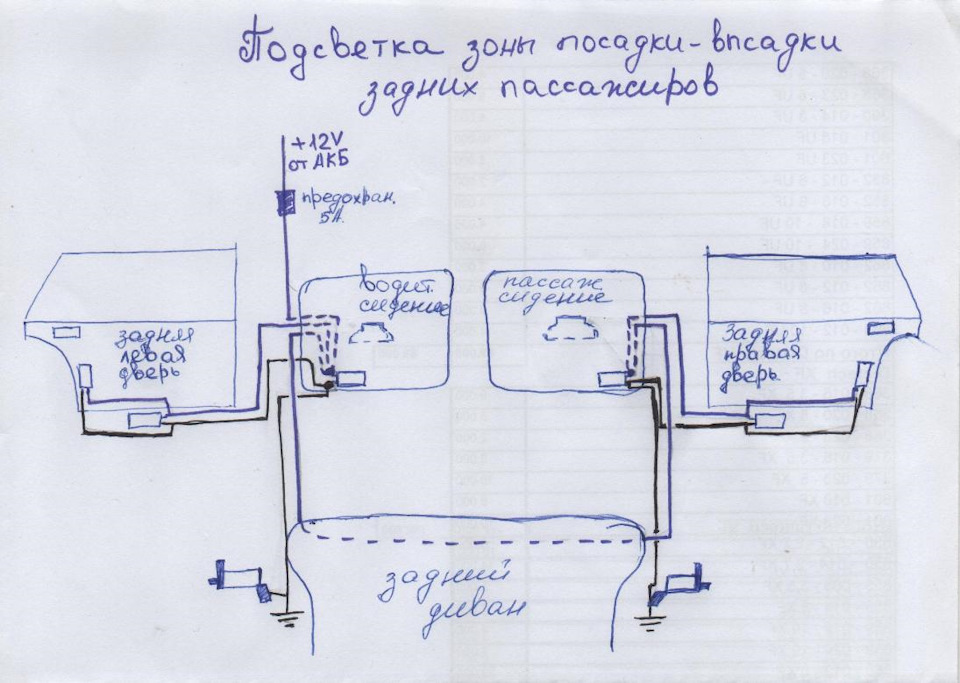 Подсветка зоны посадки-впсадки
задних пассажиров
+12V
от АКБ
предохран.
5А.
водит.
сидение
пассаж
сидение
задняя
левая
дверь
Задняя
правая
дверь.
задний
диван